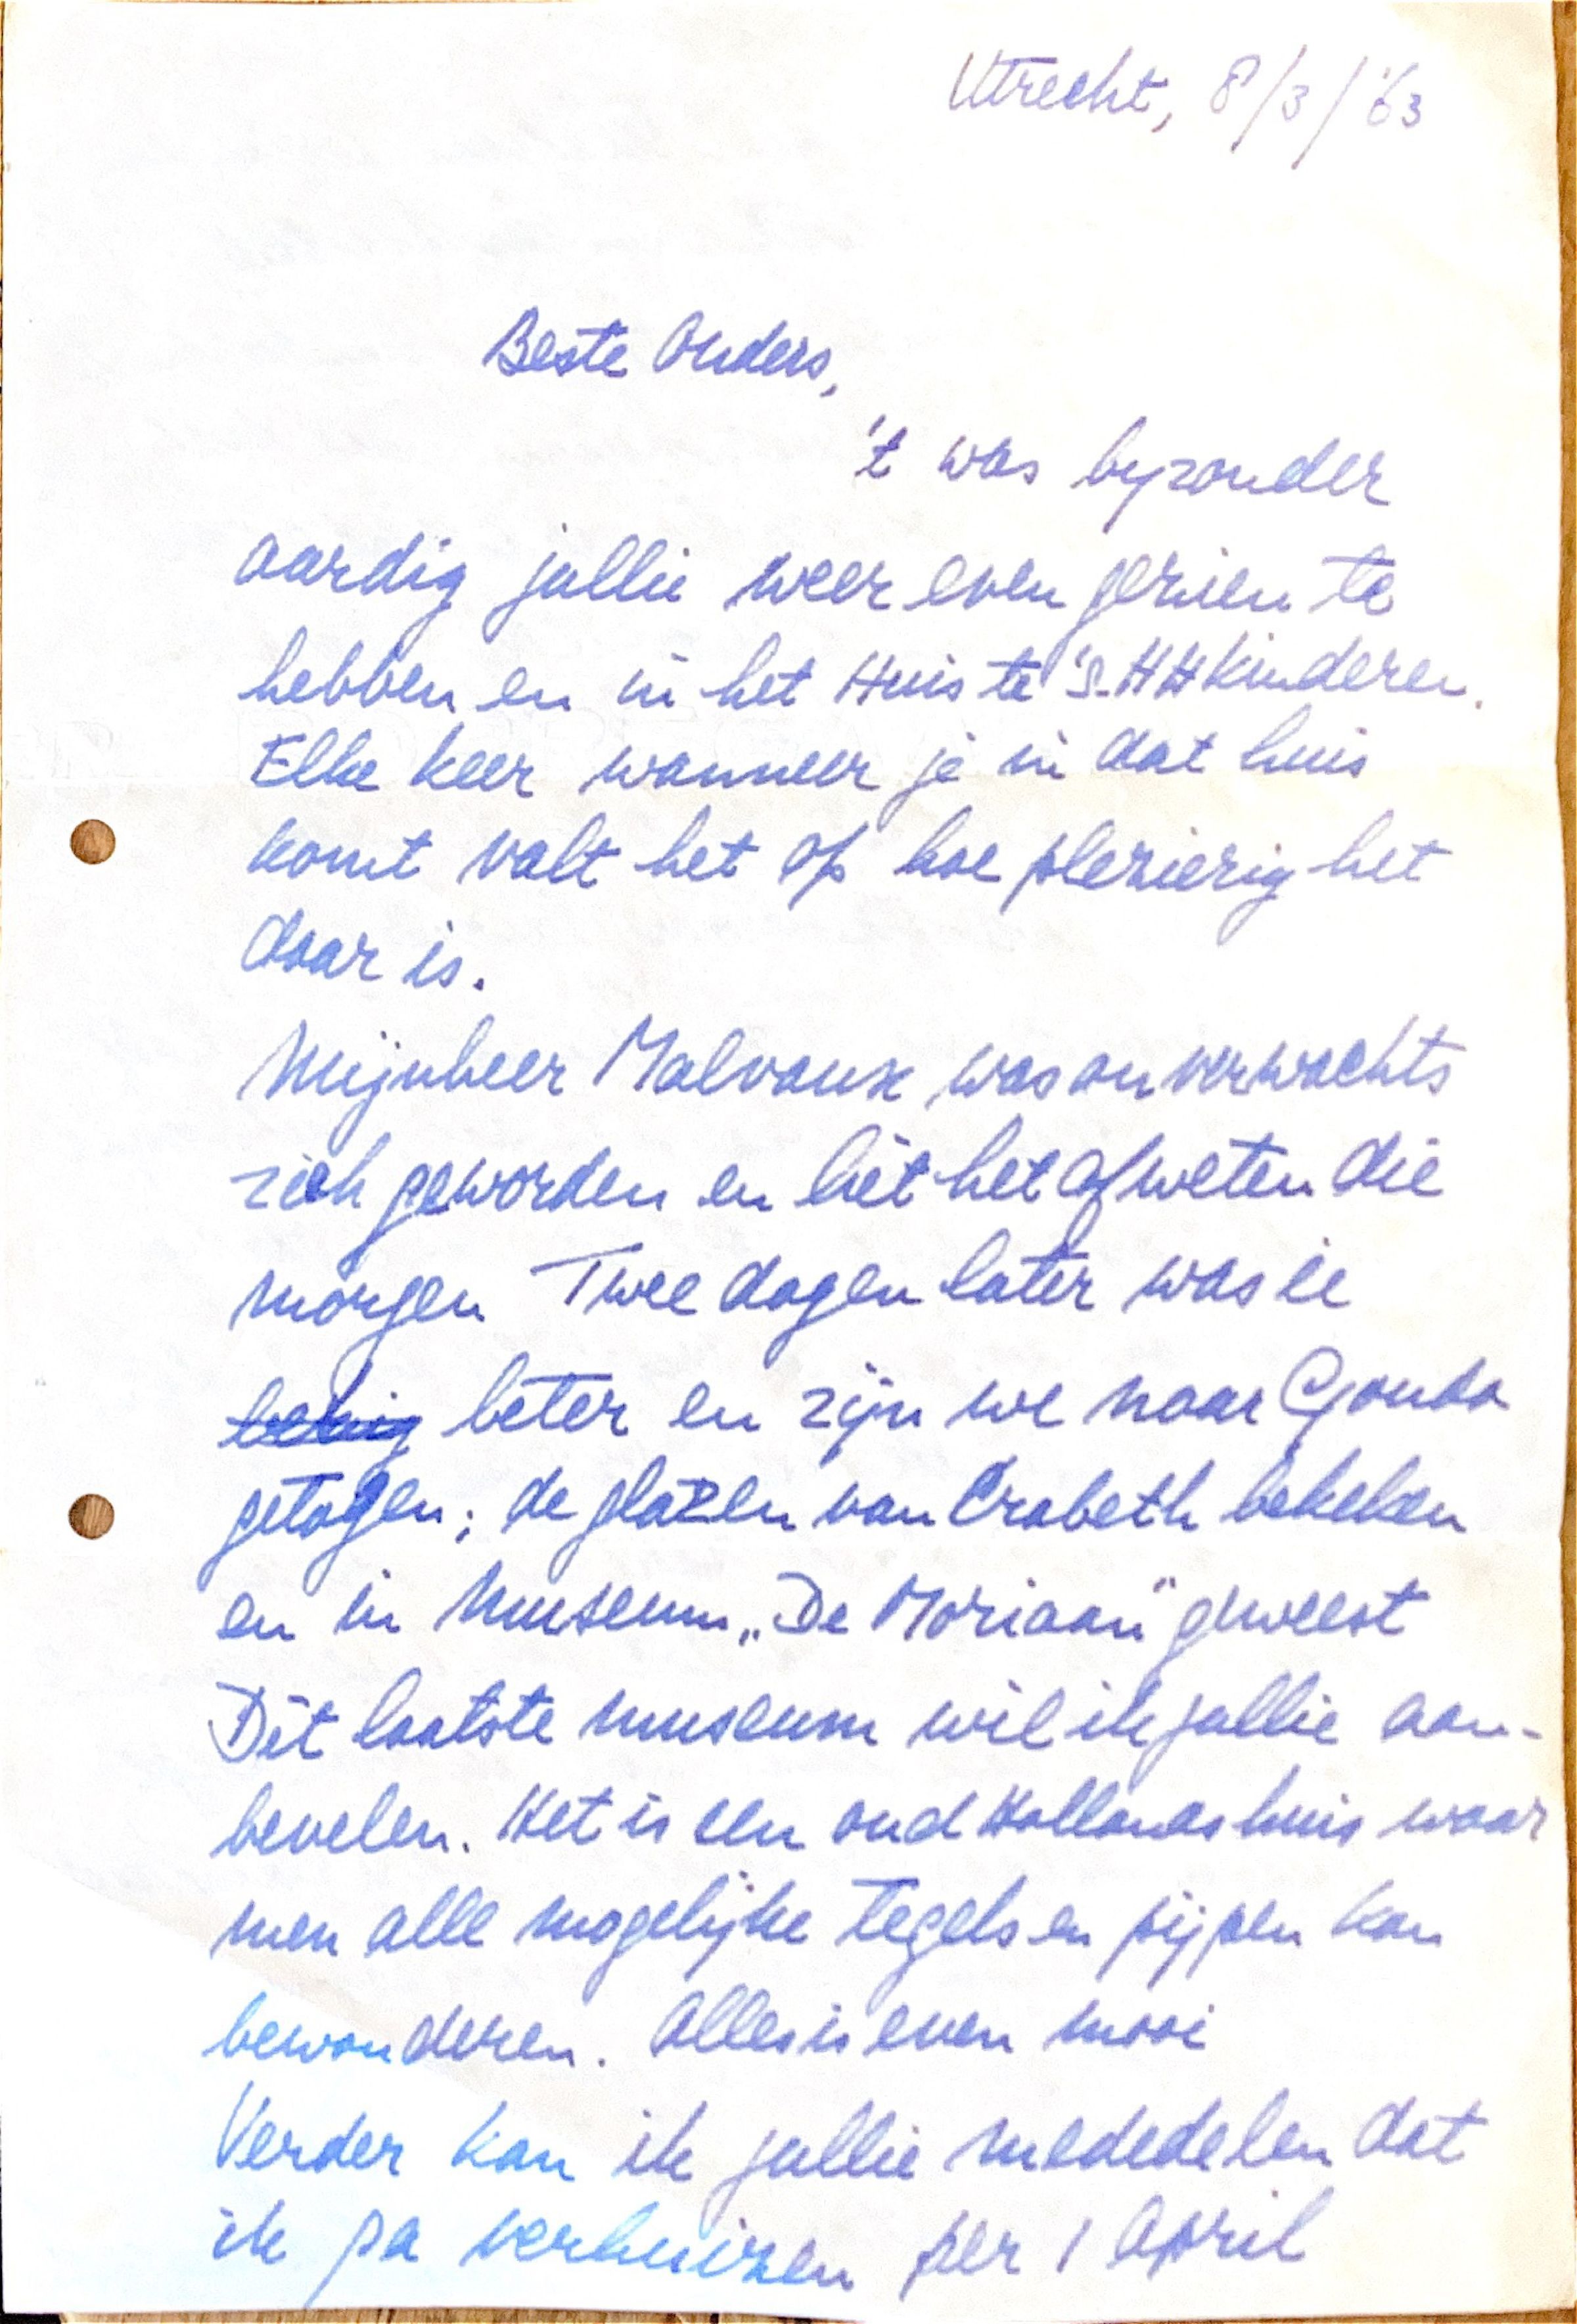 Utrecht, 8/3/'63
Beste Ouders,
't was byzonder
aardig jullie weer even gezien te
hebben en in het Huis te 's-HHKinderen.
Elke keer wanneer je in dat huis
komt valt het op hoe plezierig het
daar is.
Mijnheer Malvaux was onverwachts
ziek geworden en liet het afweten die
morgen Twee dagen later was ie
beter en zijn we naar Gouda
getogen; de glazen van Crabeth bekeken
en in museum „De Moriaan" geweest
Dit laatste museum wil ik jullie aan-
bevelen. Het is een oud Hollands huis waar
men alle mogelijke tegels en pijpen kan
bewonderen. Alles is even mooi
Verder kan ik jullie mededelen dat
ik ga verhuizen per 1 April